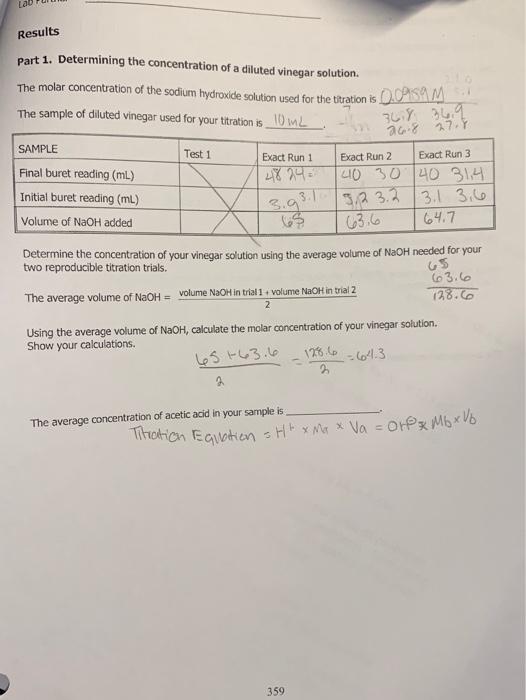 Results
Part 1. Determining the concentration of a diluted vinegar solution.
The molar concentration of the sodium hydroxide solution used for the titration is 0.0959M
The sample of diluted vinegar used for your titration is 10 mL
36.8 36.9
26.8 27.8
SAMPLE Test 1 Exact Run 1 Exact Run 2 Exact Run 3
Final buret reading (mL) 48 24 40 30 40 31.4
Initial buret reading (mL) 3.9 3.1 3.2 3.2 3.1 3.6
Volume of NaOH added 65 63.6 64.7
Determine the concentration of your vinegar solution using the average volume of NaOH needed for your
two reproducible titration trials.
65
63.6
128.6
The average volume of NaOH = volume NaOH in trial 1 + volume NaOH in trial 2
2
Using the average volume of NaOH, calculate the molar concentration of your vinegar solution.
Show your calculations.
65+63.6 = 128.6 = 64.3
2 2
The average concentration of acetic acid in your sample is
Titration Equation = H+ x Ma x Va = OH- x Mb x Vb
359